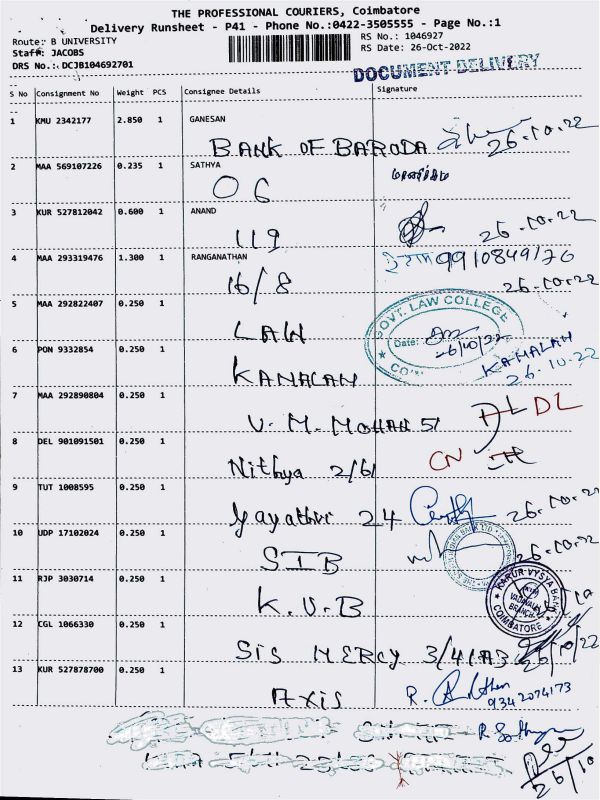 THE PROFESSIONAL COURIERS, Coimbatore
Delivery Runsheet - P41 - Phone No.:0422-3505555 - Page No.:1
Route: B UNIVERSITY
Staff: JACOBS
DRS No.: DCJB104692701
RS No.: 1046927
RS Date: 26-Oct-2022
DOCUMENT DELIVERY
S No Consignment No Weight PCS Consignee Details Signature
1 KMU 2342177 2.850 1 GANESAN
BANK OF BARODA 26.10.22
2 MAA 569107226 0.235 1 SATHYA
OG
3 KUR 527812042 0.600 1 ANAND
119 26.10.22
4 MAA 293319476 1.300 1 RANGANATHAN 9910849176
16/8 26.10.22
5 MAA 292822407 0.250 1
LAW
GOVT. LAW COLLEGE
Date: 26/10/22
6 PON 9332854 0.250 1
KAMALAM KAMALAM
26.10.22
7 MAA 292890804 0.250 1
V. M. MOHAN 51 DL DL
8 DEL 901091501 0.250 1
Nithya 2/61 CN
9 TUT 1008595 0.250 1
Gayathri 24 26.10.22
10 UDP 17102024 0.250 1
SIB 26.10.22
11 RJP 3030714 0.250 1
K.V.B
KARUR VYSYA BANK
VADAVALLI
BRANCH
COIMBATORE
12 CGL 1066330 0.250 1
SIS MERCY 3/41AB 26/10/22
13 KUR 527878700 0.250 1
AXIS R.
9342074173
R. Sathya
26/10